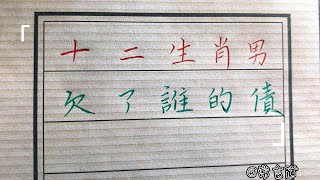 十二生肖男
欠了誰的債